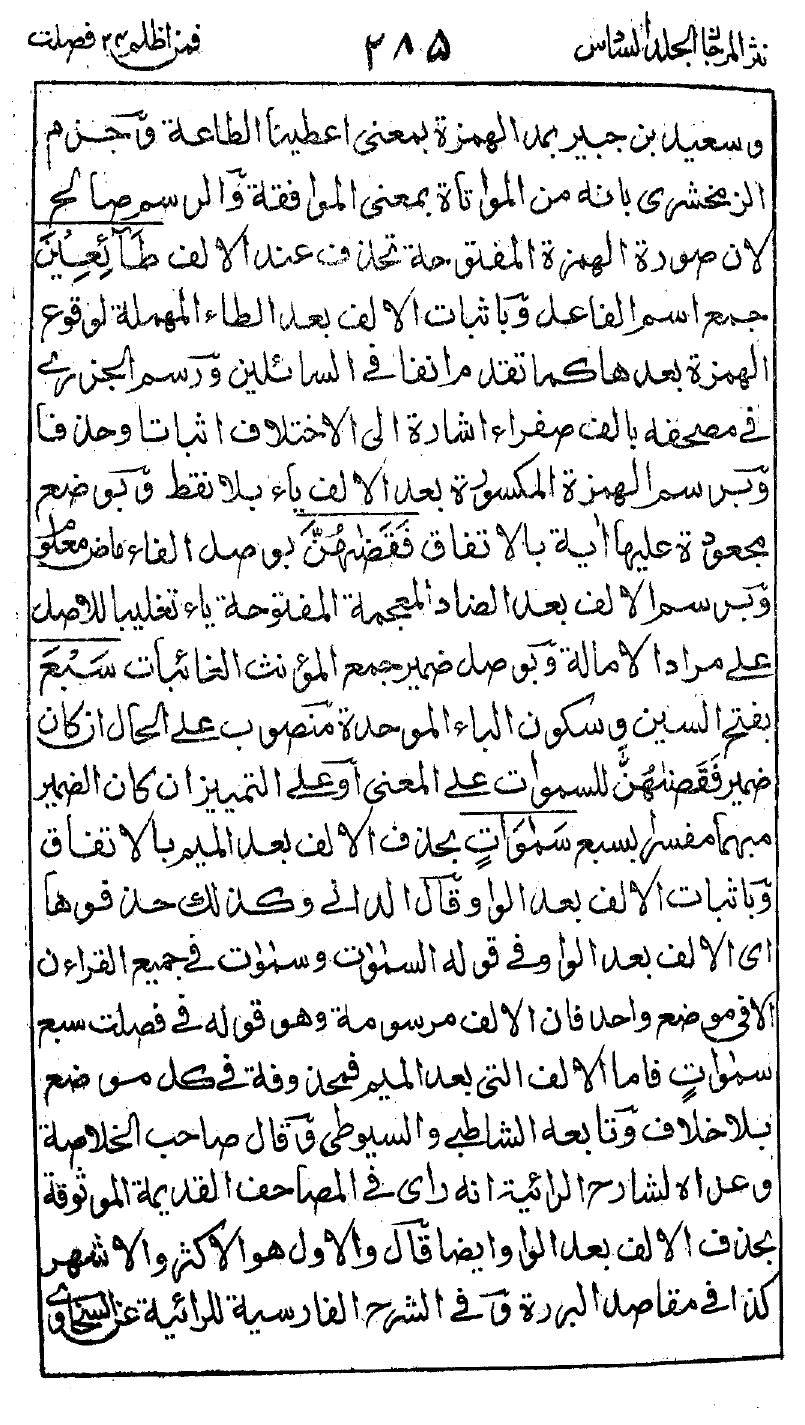 نثر المرجان المجلد السادس ٢٨٥ فمن اظلم ٢٤ فصلت
وسعيد بن جبير بمد الهمزة بمعنى اعطينا الطاعة وجزم
الزمخشرى بانه من المواتاة بمعنى الموافقة والرسم صالح
لان صورة الهمزة المفتوحة تحذف عند الالف طَآئِعِيْنَ
جمع اسم الفاعل وباثبات الالف بعد الطاء المهملة لوقوع
الهمزة بعدها كما تقدم انفا في السائلين ورسم الجزرى
في مصحفه بالف صفراء اشارة الى الاختلاف اثباتا وحذفا
وبرسم الهمزة المكسورة بعد الالف ياء بلا نقط وبوضع
مجعودة عليها اية بالاتفاق فَقَضٰهُنَّ بوصل الفاء ماض معلوم
وبرسم الالف بعد الضاد المعجمة المفتوحة ياء تغليبا للاصل
على مراد الامالة وبوصل ضمير جمع المؤنث الغائبات سَبْعَ
بفتح السين وسكون الباء الموحدة منصوب على الحال ان كان
ضمير فَقَضٰىهُنَّ للسموات على المعنى او على التمييز ان كان الضمير
مبهما مفسرا بسبع سَمٰوَاتٍ بحذف الالف بعد الميم بالاتفاق
وباثبات الالف بعد الواو قال الدانى وكذلك حذفوها
اى الالف بعد الواو في قوله السمٰوٰت وسمٰوٰت في جميع القراٰن
الا في موضع واحد فان الالف مرسومة وهو قوله في فصلت سبع
سمٰوٰاتٍ فاما الالف التى بعد الميم فمحذوفة في كل موضع
بلا خلاف وتابعه الشاطبى والسيوطى وقال صاحب الخلاصة
وعداه لشارح الرائية انه راى في المصاحف القديمة الموثوقة
بحذف الالف بعد الواو وايضا قال والاول هو الاكثر والاشهر
كذا في مقاصد البررة وفي الشرح الفارسية للرائية عن السخاوى